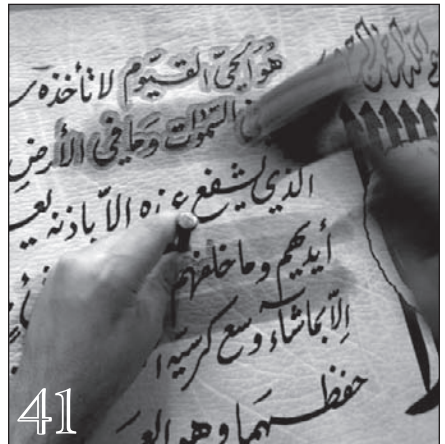 هُوَ الحيّ القيّوم لا تأخذه
السّمٰوات وَمَا في الأرضِ
الذي يشفع الاّ باذنه
أيديهم وما خلفهم
إلاّ بماشاء وسع كرسيّه
حفظهما وهو
41